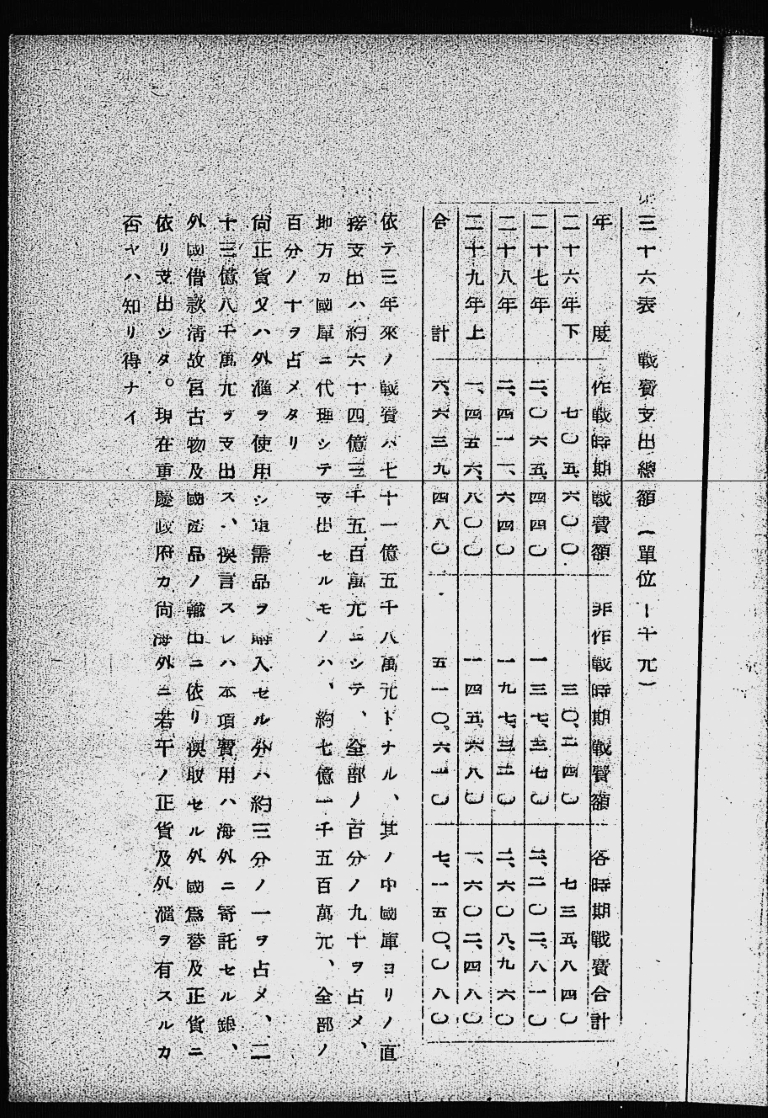 三十六表 戰費支出總額 (單位ー千元)
年度 作戰時期戰費額 非作戰時期戰費額 各時期戰費合計
二十六年下 七〇五、六〇〇 三〇、二四〇 七三五、八四〇
二十七年 二、〇六五、四四〇 一三七、三七〇 二、二〇二、八一〇
二十八年 二、四一一、六四〇 一九七、三二〇 二、六〇八、九六〇
二十九年上 一、四五六、八〇〇 一四五、六八〇 一、六〇二、四八〇
合計 六、六三九、四八〇 五一〇、六一〇 七、一五〇、〇八〇
依テ三年來ノ戰費ハ七十一億五千八萬元トナル、其ノ中國庫ヨリノ直
接支出ハ約六十四億三千五百萬元ニシテ、全部ノ百分ノ九十ヲ占メ、
地方カ國庫ニ代理シテ支出セルモノハ、約七億一千五百萬元、全部ノ
百分ノ十ヲ占メタリ
尙正貨又ハ外滙ヲ使用シ軍需品ヲ購入セル分ハ約三分ノ一ヲ占メ、二
十三億八千萬元ヲ支出ス、換言スレハ本項費用ハ海外ニ寄託セル銀、
外國借款淸故宮古物及國產品ノ輸出ニ依リ換取セル外國爲替及正貨ニ
依リ支出シタ。現在重慶政府カ尙海外ニ若干ノ正貨及外滙ヲ有スルカ
否ヤハ知リ得ナイ